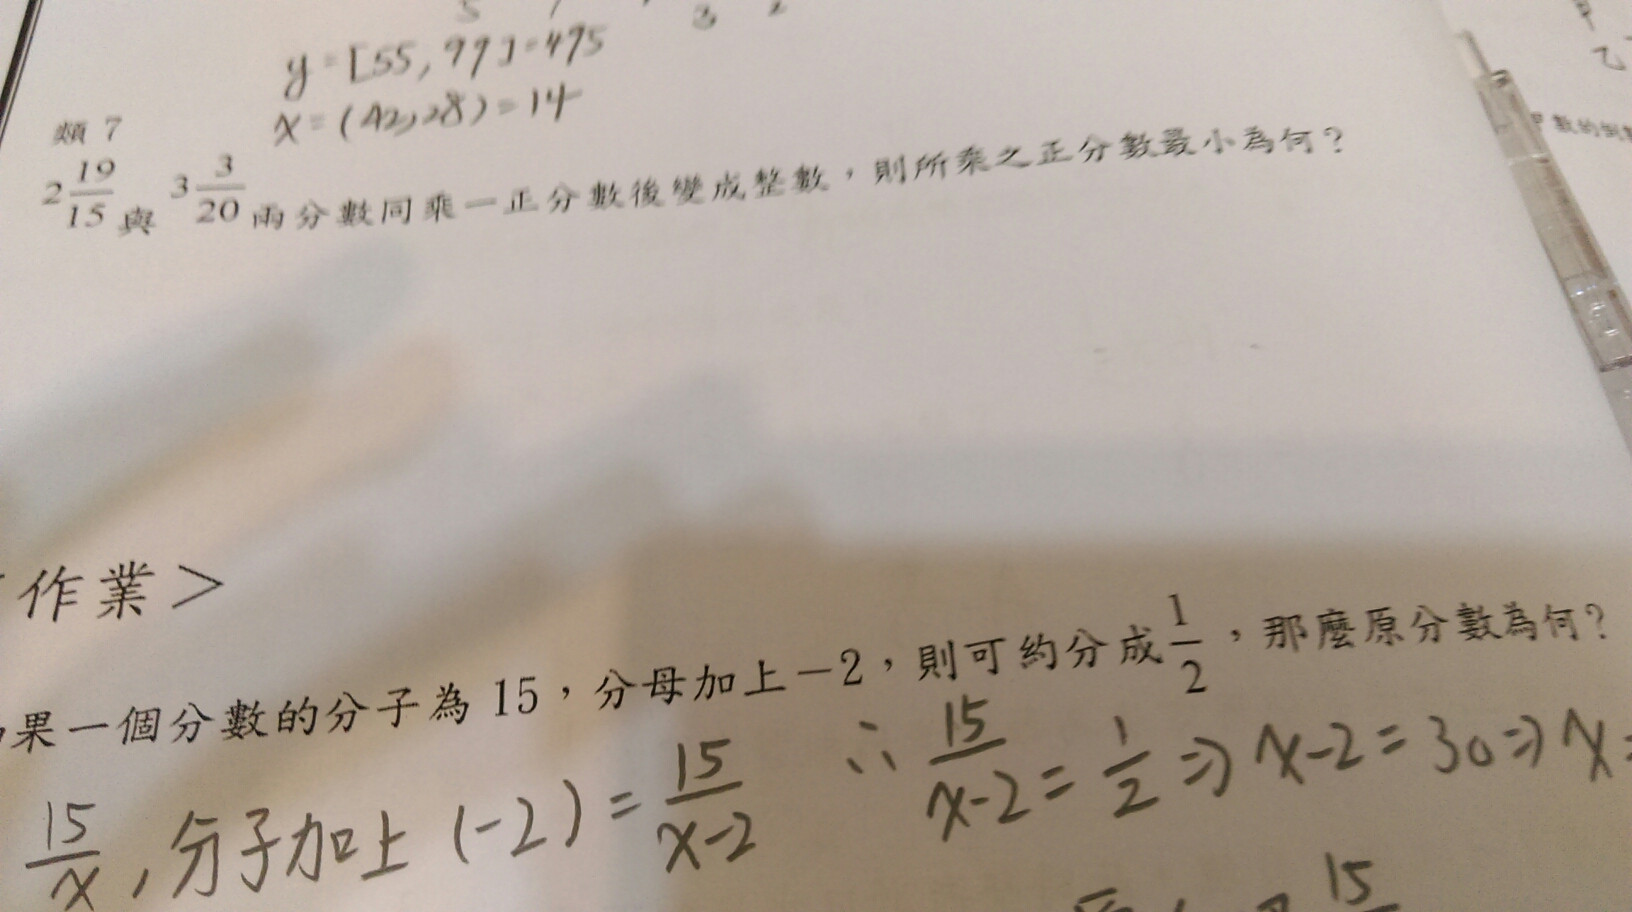 y=[55,99]=495
x=(42,28)=14
類 7
2 19/15 與 3 3/20 兩分數同乘一正分數後變成整數，則所乘之正分數最小為何？
作業＞
果一個分數的分子為 15，分母加上－2，則可約分成 1/2，那麼原分數為何？
15/x，分子加上(-2)=15/x-2 ∴ 15/x-2=1/2⇒x-2=30⇒x=
15